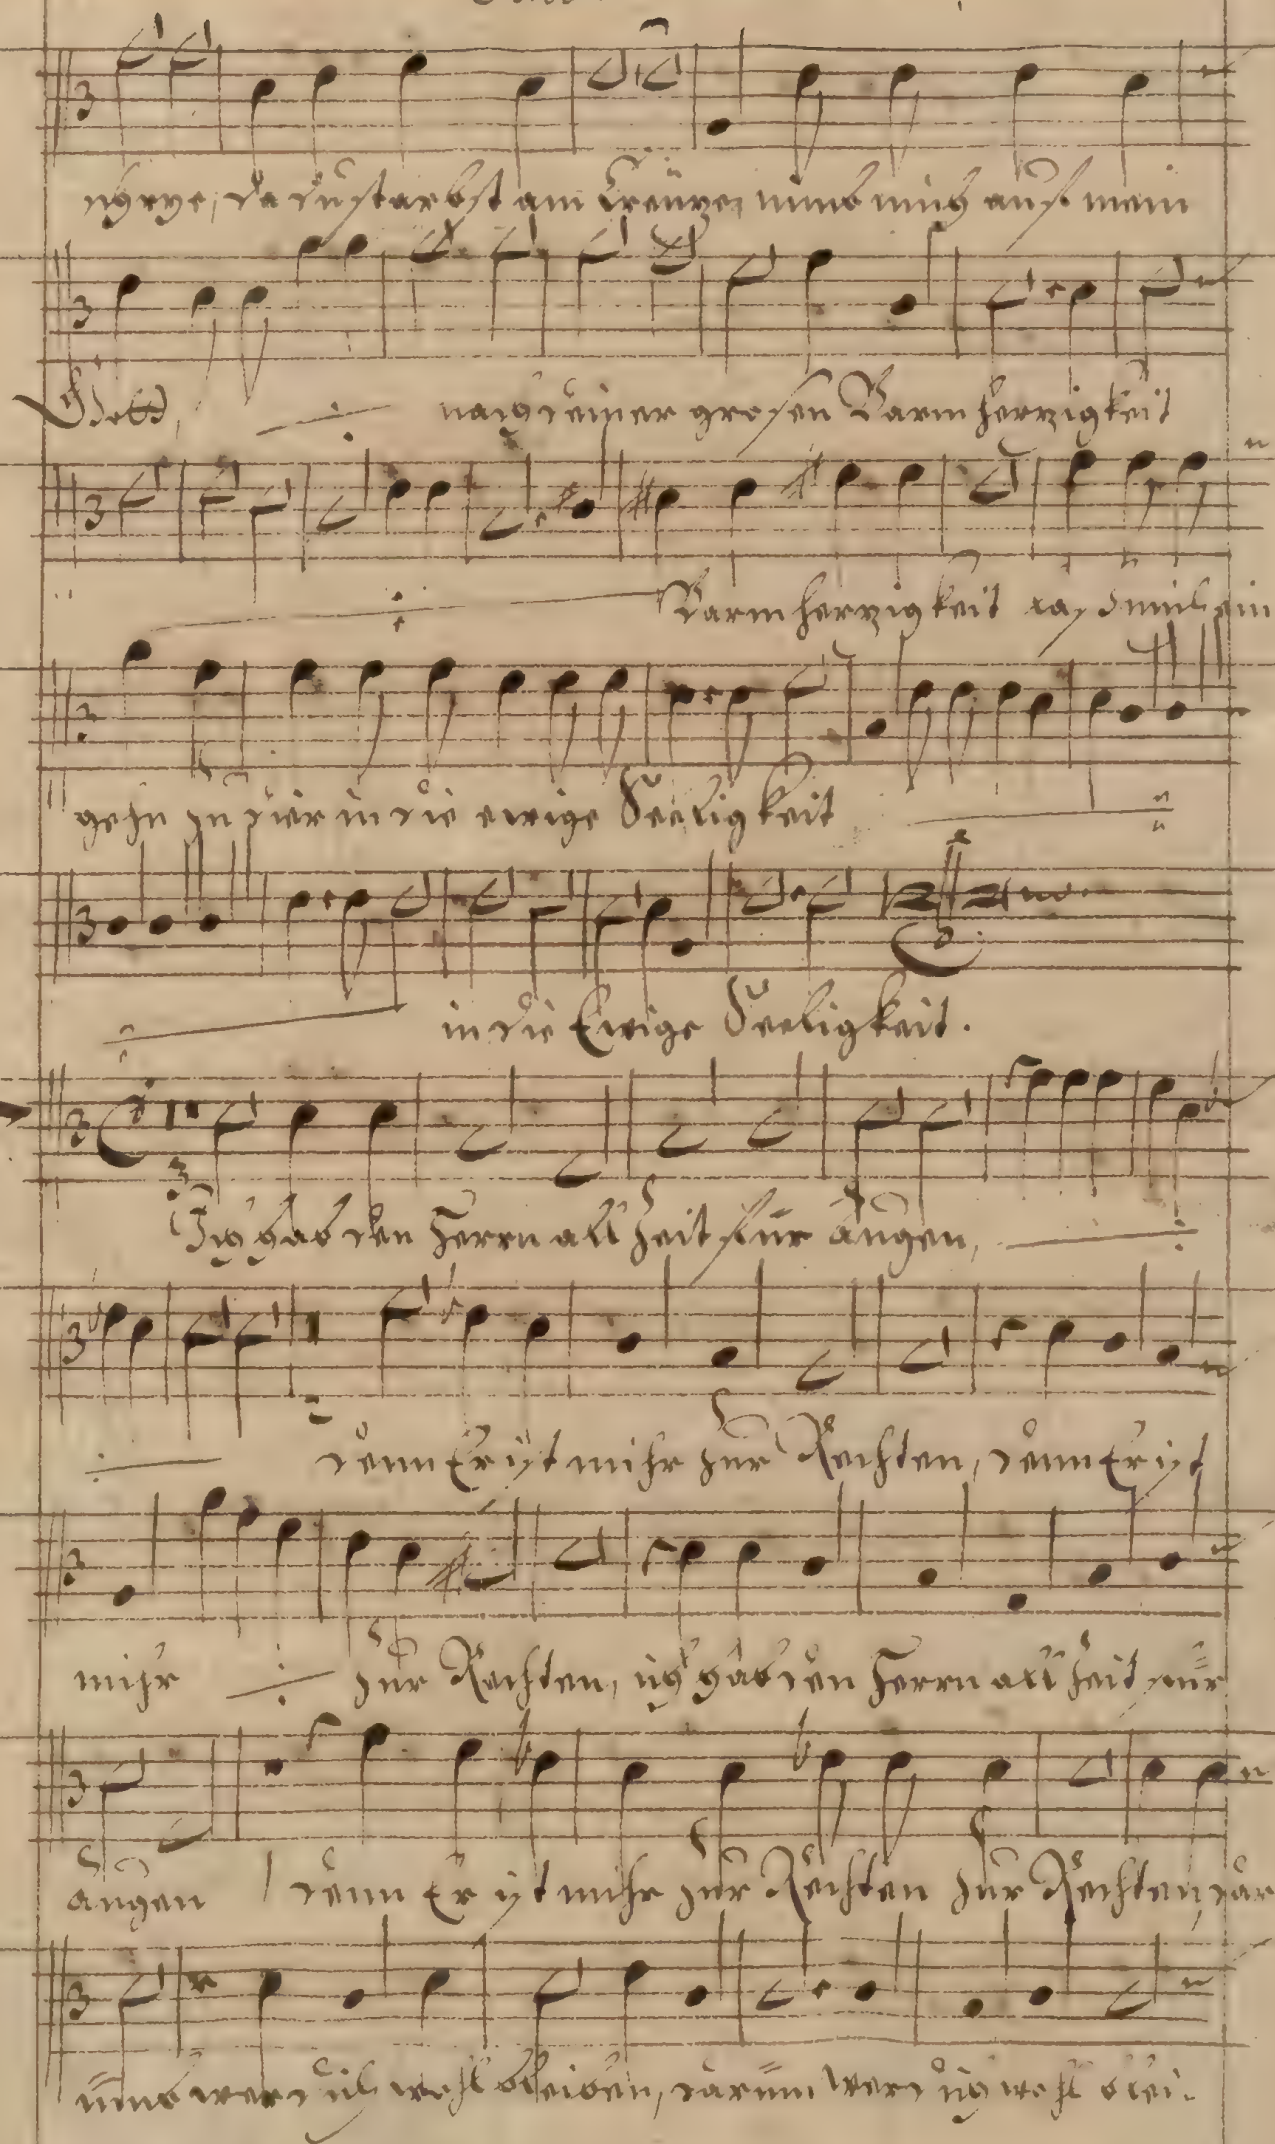 da du starbst am Creutze, nimb mich auf mein
Gott, nach deiner grosen Barmhertzigkeit
Barmhertzigkeit laß mich ein
gehn zu dier in die ewige Seeligkeit
in die Ewige Seeligkeit.
Ich hab den Herrn all Zeit für augen,
denn Er ist mihr zur Rechten, denn Er ist
mihr zur Rechten, ich hab den Herrn all Zeit für
augen denn Er ist mihr zur Rechten zur Rechten, dar
umb werd ich wohl bleiben, darum werd ich wohl blei-